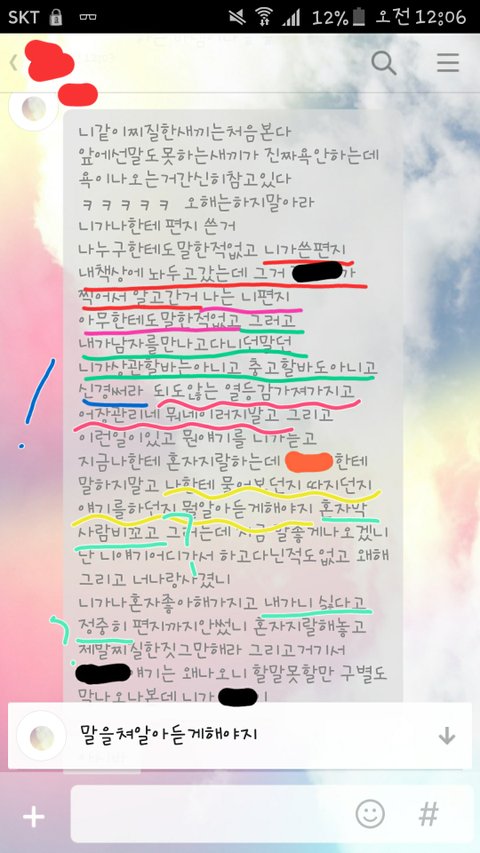 SKT 12% 오전 12:06
니같이찌질한새끼는처음본다
앞에선말도못하는새끼가 진짜욕안하는데
욕이나오는거간신히참고있다
ㅋㅋㅋㅋㅋ 오해는하지말아라
니가나한테 편지 쓴거
나누구한테도말한적없고 니가쓴편지
내책상에 놔두고갔는데 그거 가
찍어서 알고간거 나는 니편지
아무한테도말한적없고 그러고
내가남자를만나고다니던말던
니가상관할바는아니고 충고할바도아니고
신경써라 되도않는 열등감가져가지고
어장관리네 뭐네이러지말고 그리고
이런일이있고 뭔얘기를 니가듣고
지금나한테 혼자지랄하는데 한테
말하지말고 나한테 물어보던지 따지던지
얘기를하던지 뭘알아듣게해야지 혼자막
사람비꼬고 그러는데 지금 말좋게나오겠니
난 니얘기어디가서 하고다닌적도없고 왜해
그리고 너나랑사겼니
니가나혼자좋아해가지고 내가니 싫다고
정중히 편지까지안썼니 혼자지랄해놓고
제발찌질한짓그만해라 그리고거기서
얘기는 왜나오니 할말못할말 구별도
막나오나본데 니가
말을쳐알아듣게해야지